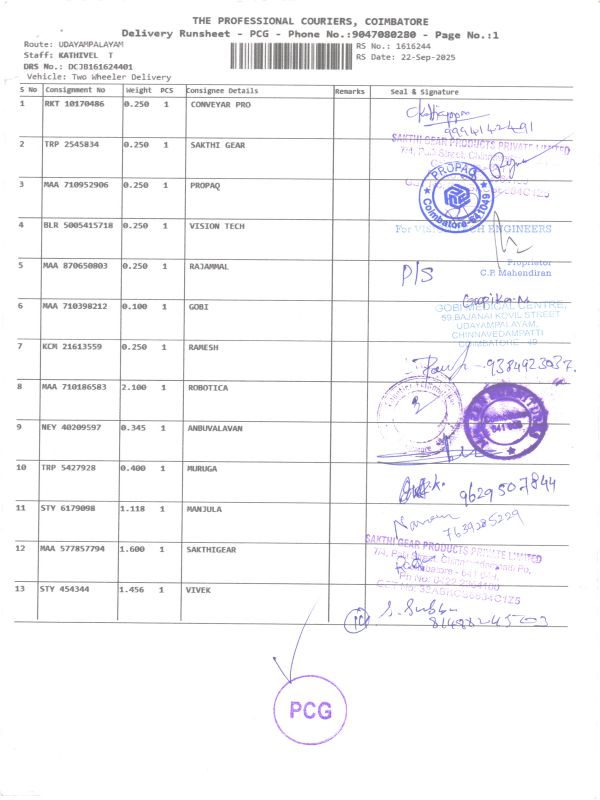 THE PROFESSIONAL COURIERS, COIMBATORE
Delivery Runsheet - PCG - Phone No.:9047080280 - Page No.:1
Route: UDAYAMPALAYAM
Staff: KATHIVEL T
DRS No.: DCJB161624401
Vehicle: Two Wheeler Delivery
RS No.: 1616244
RS Date: 22-Sep-2025
S No Consignment No Weight PCS Consignee Details Remarks Seal & Signature
1 RKT 10170486 0.250 1 CONVEYAR PRO
9994142491
2 TRP 2545834 0.250 1 SAKTHI GEAR
SAKTHI GEAR PRODUCTS PRIVATE LIMITED
3 MAA 710952906 0.250 1 PROPAQ
PROPAQ
Coimbatore-641049
4 BLR 5005415718 0.250 1 VISION TECH
For VISION TECH ENGINEERS
Proprietor
C.P. Mahendiran
5 MAA 870650803 0.250 1 RAJAMMAL
P/S
6 MAA 710398212 0.100 1 GOBI
Gopika.M
GOBI MEDICAL CENTRE,
59 BAJANAI KOVIL STREET
UDAYAMPALAYAM,
CHINNAVEDAMPATTI
COIMBATORE - 49
7 KCM 21613559 0.250 1 RAMESH
9384923037.
8 MAA 710186583 2.100 1 ROBOTICA
9 NEY 40209597 0.345 1 ANBUVALAVAN
10 TRP 5427928 0.400 1 MURUGA
9629507844
11 STY 6179098 1.118 1 MANJULA
7639285229
12 MAA 577857794 1.600 1 SAKTHIGEAR
SAKTHI GEAR PRODUCTS PRIVATE LIMITED
13 STY 454344 1.456 1 VIVEK
PCG